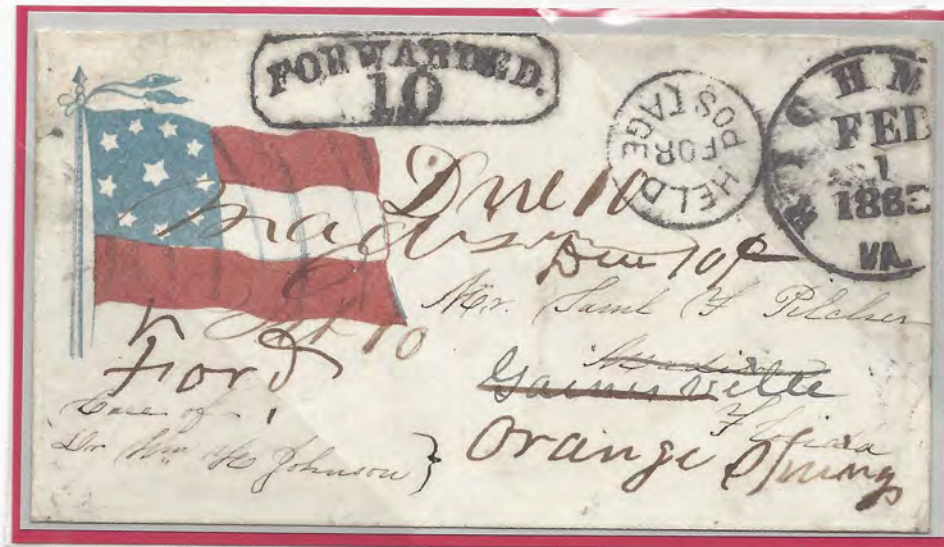 FORWARDED.
10
HELD FOR POSTAGE
FEB
1
1863
VA.
Due 10
Madison
Due 10¢
Mr. Saml Y Pilcher
10
Ford
Gainesville
Florida
Care of
Dr Wm H Johnson }
Orange Springs